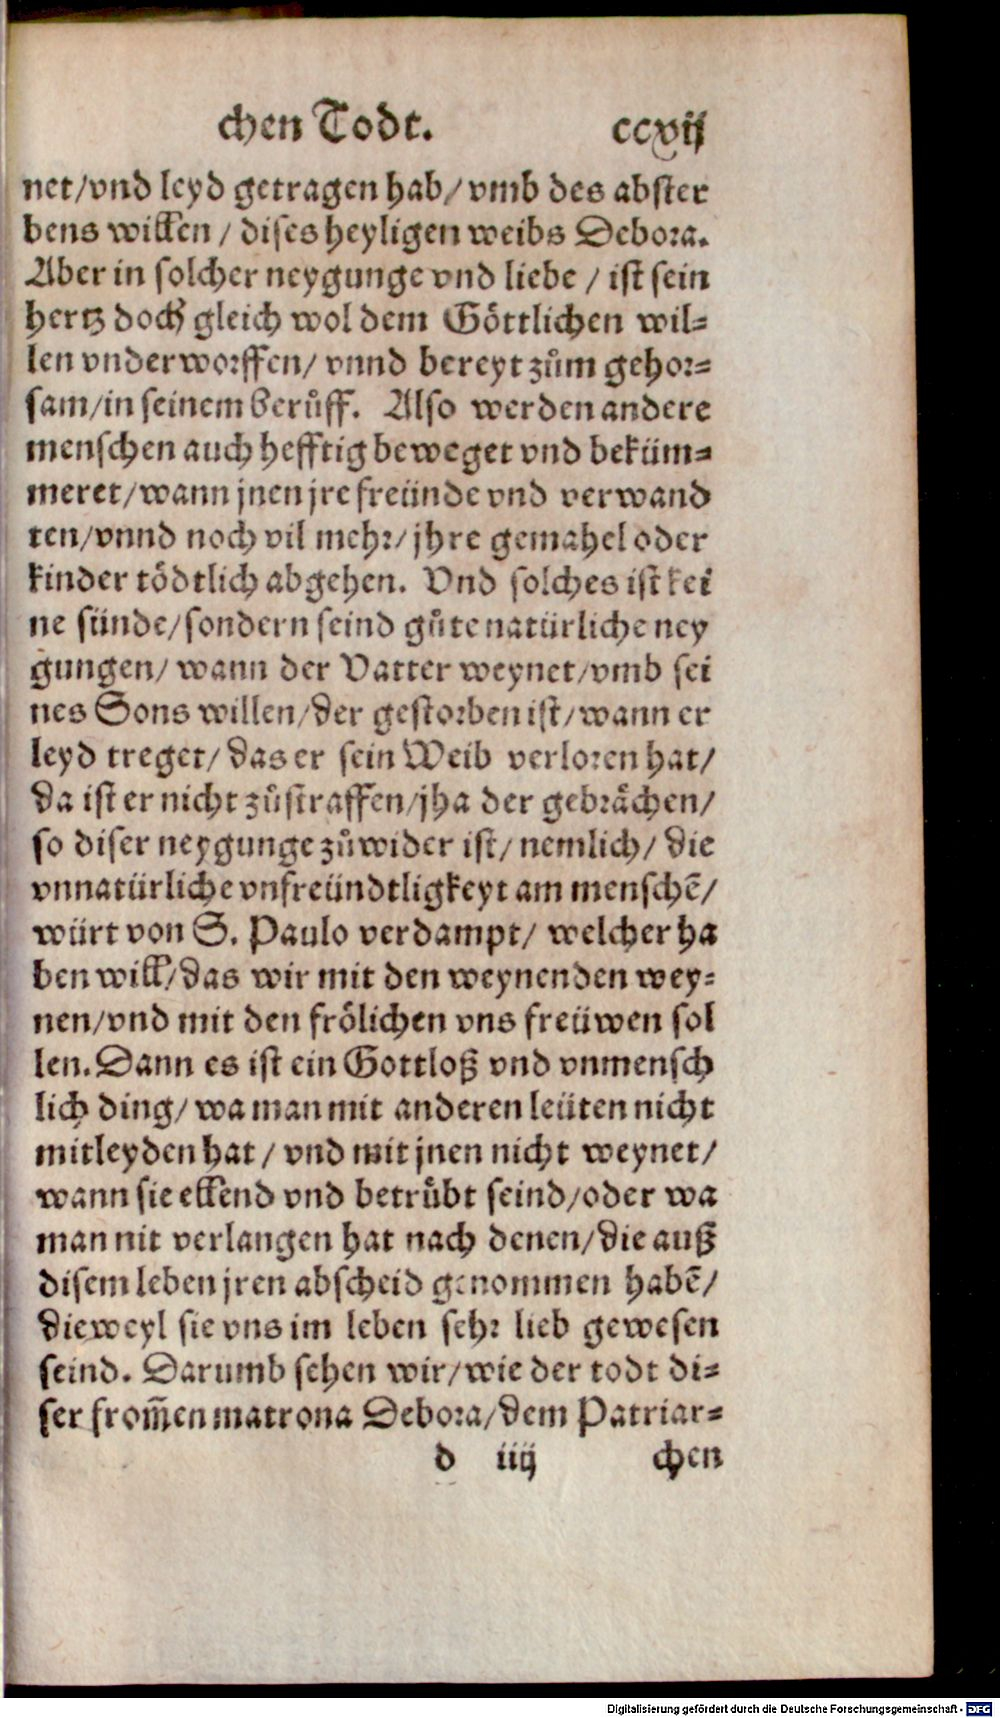 chen Todt. ccxvij
net/vnd leyd getragen hab/vmb des abster
bens willen / dises heyligen weibs Debora.
Aber in solcher neygunge vnd liebe / ist sein
hertz doch gleich wol dem Göttlichen wil-
len vnderworffen/ vnnd bereyt zům gehor-
sam/in seinem berůff. Also werden andere
menschen auch hefftig beweget vnd beküm-
meret/wann jnen jre freünde vnd verwand
ten/vnnd noch vil mehr/jhre gemahel oder
kinder tödtlich abgehen. Vnd solches ist kei
ne sünde/sondern seind gůte natürliche ney
gungen/ wann der Vatter weynet/vmb sei
nes Sons willen/der gestorben ist/wann er
leyd treget/das er sein Weib verloren hat/
da ist er nicht zůstraffen/jha der gebrächen/
so diser neygunge zůwider ist/ nemlich/ die
vnnatürliche vnfreündtligkeyt am menschē/
würt von S. Paulo verdampt/ welcher ha
ben will/das wir mit den weynenden wey-
nen/vnd mit den frölichen vns freüwen sol
len. Dann es ist ein Gottloß vnd vnmensch
lich ding/ wa man mit anderen leüten nicht
mitleyden hat / vnd mit jnen nicht weynet/
wann sie ellend vnd betrůbt seind/oder wa
man nit verlangen hat nach denen/die auß
disem leben jren abscheid genommen habē/
dieweyl sie vns im leben sehr lieb gewesen
seind. Darumb sehen wir/wie der todt di-
ser from̄en matrona Debora/dem Patriar-
d iiij chen
Digitalisierung gefördert durch die Deutsche Forschungsgemeinschaft - DFG